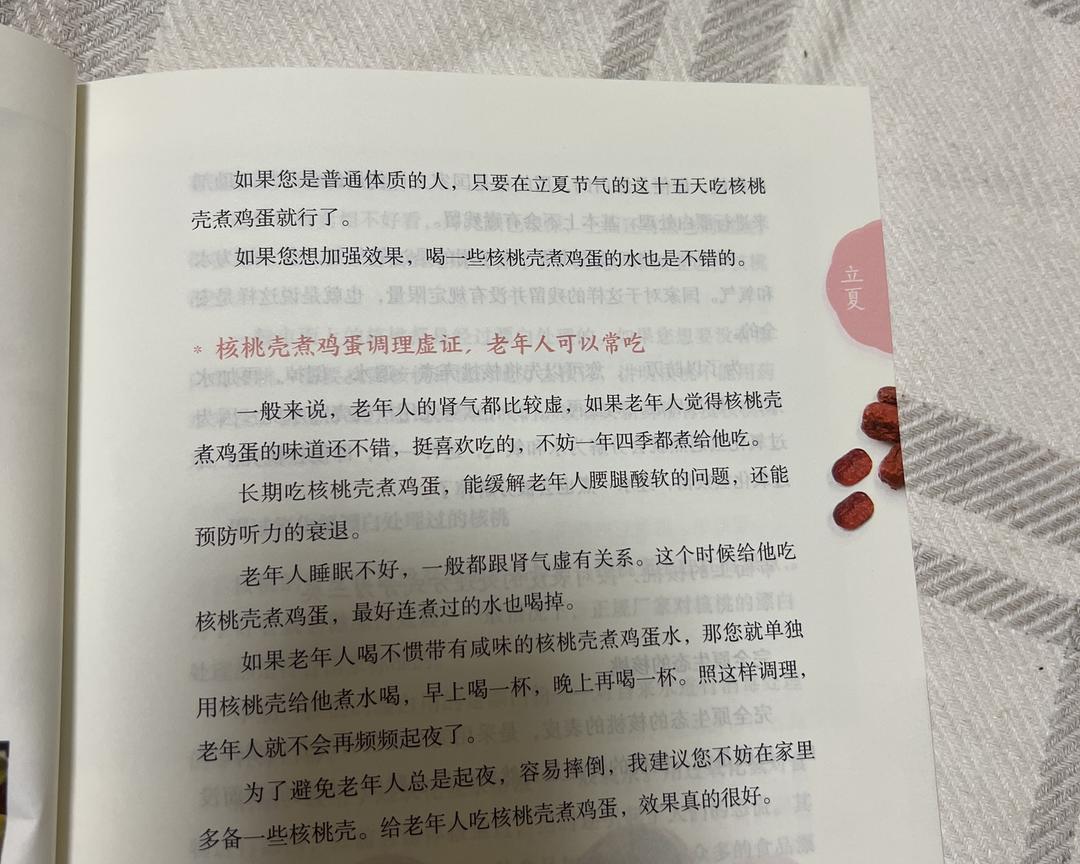 如果您是普通体质的人，只要在立夏节气的这十五天吃核桃
壳煮鸡蛋就行了。
如果您想加强效果，喝一些核桃壳煮鸡蛋的水也是不错的。
立夏
* 核桃壳煮鸡蛋调理虚证，老年人可以常吃
一般来说，老年人的肾气都比较虚，如果老年人觉得核桃壳
煮鸡蛋的味道还不错，挺喜欢吃的，不妨一年四季都煮给他吃。
长期吃核桃壳煮鸡蛋，能缓解老年人腰腿酸软的问题，还能
预防听力的衰退。
老年人睡眠不好，一般都跟肾气虚有关系。这个时候给他吃
核桃壳煮鸡蛋，最好连煮过的水也喝掉。
如果老年人喝不惯带有咸味的核桃壳煮鸡蛋水，那您就单独
用核桃壳给他煮水喝，早上喝一杯，晚上再喝一杯。照这样调理，
老年人就不会再频频起夜了。
为了避免老年人总是起夜，容易摔倒，我建议您不妨在家里
多备一些核桃壳。给老年人吃核桃壳煮鸡蛋，效果真的很好。